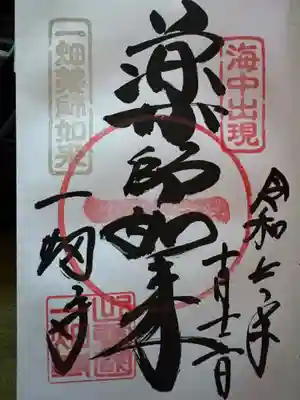 海中出現
令和
十月十二日
薬師如来
一畑薬師如来
一畑寺